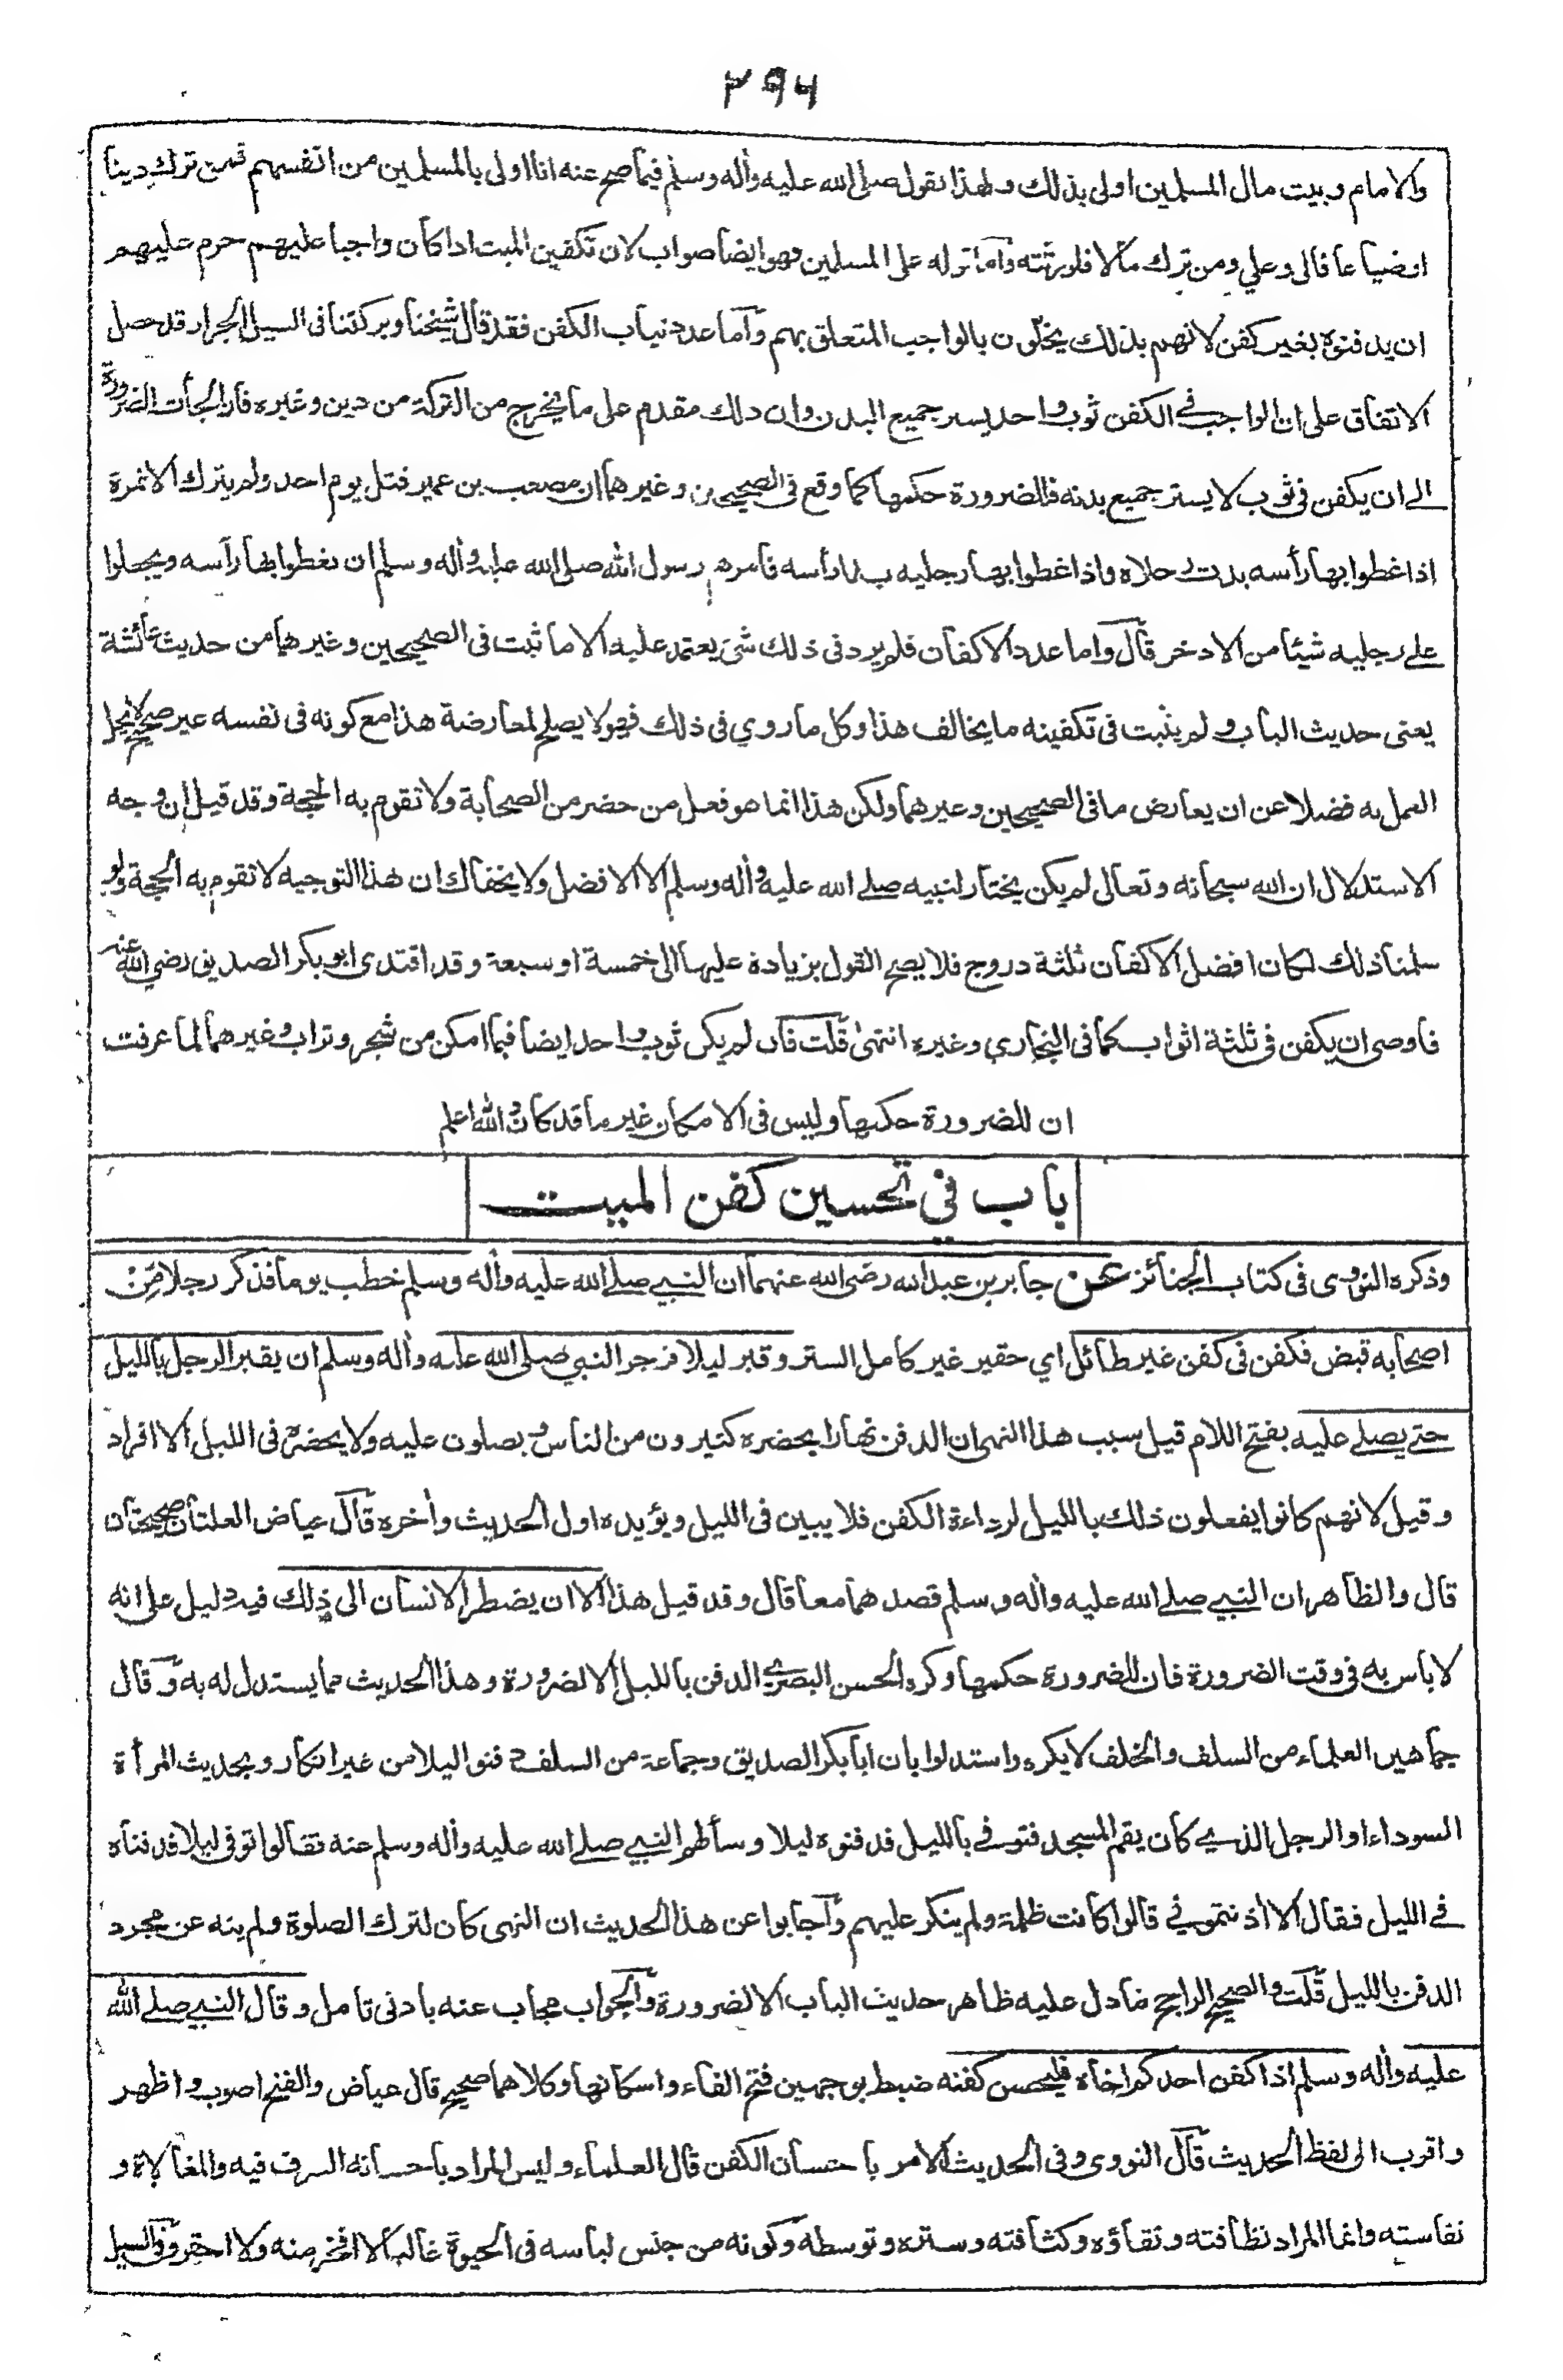 ٢٩٤
والامام وبيت مال المسلمين اولى بذلك ولهذا يقول صلى الله عليه واله وسلم فيما صح عنه انا اولى بالمسلمين من انفسهم فمن ترك دينا
اوضياعا فالى وعلي ومن ترك مالا فلورثته واما قوله على المسلمين فهو ايضا صواب لان تكفين الميت اذا كان واجبا عليهم حرم عليهم
ان يدفنوه بغير كفن لانهم بذلك يخلون بالواجب المتعلق بهم واما عدد ثياب الكفن فقد قال شيخنا وبركتنا فى السيل الجرار قد حصل
الاتفاق على ان الواجب في الكفن ثوب واحد يستر جميع البدن وان ذلك مقدم على ما يخرج من التركة من دين وغيره فان الجأت الضرورة
الى ان يكفن فى ثوب لا يستر جميع بدنه فللضرورة حكمها كما وقع فى الصحيحين وغيرهما ان مصعب بن عمير قتل يوم احد ولم يترك الا نمرة
اذا غطوا بها رأسه بدت رجلاه واذا غطوا بها رجليه بدا رأسه فامرهم رسول الله صلى الله عليه واله وسلم ان يغطوا بها رأسه ويجعلوا
على رجليه شيئا من الاذخر قال واما عدد الاكفان فلم يرد فى ذلك شئ يعتمد عليه الا ما ثبت فى الصحيحين وغيرهما من حديث عائشة
يعنى حديث الباب ولم يثبت فى تكفينه ما يخالف هذا وكل ما روي فى ذلك فهو لا يصلح لمعارضة هذا مع كونه فى نفسه غير صحيح لا يحل
العمل به فضلا عن ان يعارض ما فى الصحيحين وغيرهما ولكن هذا انما هو فعل من حضر من الصحابة ولا تقوم به الحجة وقد قيل ان وجه
الاستدلال ان الله سبحانه وتعالى لم يكن يختار لنبيه صلى الله عليه واله وسلم الا الافضل ولا يخفاك ان هذا التوجيه لا تقوم به الحجة ولو
سلمنا ذلك لكان افضل الاكفان ثلثة دروج فلا يصح القول بزيادة عليها الى خمسة او سبعة وقد اقتدى ابو بكر الصديق رضي الله عنه
فاوصى ان يكفن فى ثلثة اثواب كما فى البخاري وغيره انتهى قلت فان لم يكن ثوب واحد ايضا فبما امكن من شجر وتراب وغيرهما لما عرفت
ان للضرورة حكمها وليس فى الامكان غير ما قد كان والله اعلم
باب في تحسين كفن الميت
وذكره النووى فى كتاب الجنائز عن جابر بن عبد الله رضى الله عنهما ان النبي صلى الله عليه واله وسلم خطب يوما فذكر رجلا من
اصحابه قبض فكفن فى كفن غير طائل اي حقير غير كامل الستر وقبر ليلا فزجر النبي صلى الله عليه واله وسلم ان يقبر الرجل بالليل
حتى يصلى عليه بفتح اللام قيل سبب هذا النهى ان الدفن نهارا يحضره كثيرون من الناس ويصلون عليه ولا يحضره فى الليل الا افراد
وقيل لانهم كانوا يفعلون ذلك بالليل لرداءة الكفن فلا يبين فى الليل ويؤيده اول الحديث وأخره قال عياض العلتان صحيحتان
قال والظاهر ان النبي صلى الله عليه واله وسلم قصدهما معا قال وقد قيل هذا الا ان يضطر الانسان الى ذلك فيه دليل على انه
لا باس به فى وقت الضرورة فان للضرورة حكمها وكره الحسن البصري الدفن بالليل الا لضرورة وهذا الحديث مما يستدل له به وقال
جماهير العلماء من السلف والخلف لا يكره واستدلوا بان ابا بكر الصديق وجماعة من السلف دفنوا ليلا من غير انكار وبحديث المرأة
السوداء او الرجل الذي كان يقم المسجد فتوفي بالليل فدفنوه ليلا وسألهم النبي صلى الله عليه واله وسلم عنه فقالوا توفى ليلا فدفناه
في الليل فقال الا اذنتموني قالوا كانت ظلمة ولم ينكر عليهم وأجابوا عن هذا الحديث ان النهى كان لترك الصلوة ولم ينه عن مجرد
الدفن بالليل قلت والصحيح الراجح ما دل عليه ظاهر حديث الباب الا لضرورة والجواب مجاب عنه بادنى تامل وقال النبي صلى الله
عليه واله وسلم اذا كفن احدكم اخاه فليحسن كفنه ضبط بوجهين فتح الفاء واسكانها وكلاهما صحيح قال عياض والفتح اصوب واظهر
واقرب الى لفظ الحديث قال النووى وفى الحديث الامر باحسان الكفن قال العلماء وليس المراد باحسانه السرف فيه والمغالاة و
نفاسته وانما المراد نظافته ونقاؤه وكثافته وستره وتوسطه وكونه من جنس لباسه فى الحيوة غالبا لا افخر منه ولا احقر وفى السيل